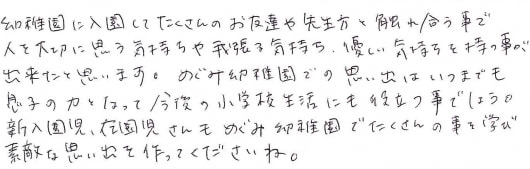 幼稚園に入園してたくさんのお友達や先生方と触れ合う事で
人を大切に思う気持ちや頑張る気持ち、優しい気持ちを持つ事が
出来たと思います。めぐみ幼稚園での思い出はいつまでも
息子の力となって今後の小学校生活にも役立つ事でしょう。
新入園児、在園児さんもめぐみ幼稚園でたくさんの事を学び
素敵な思い出を作ってくださいね。